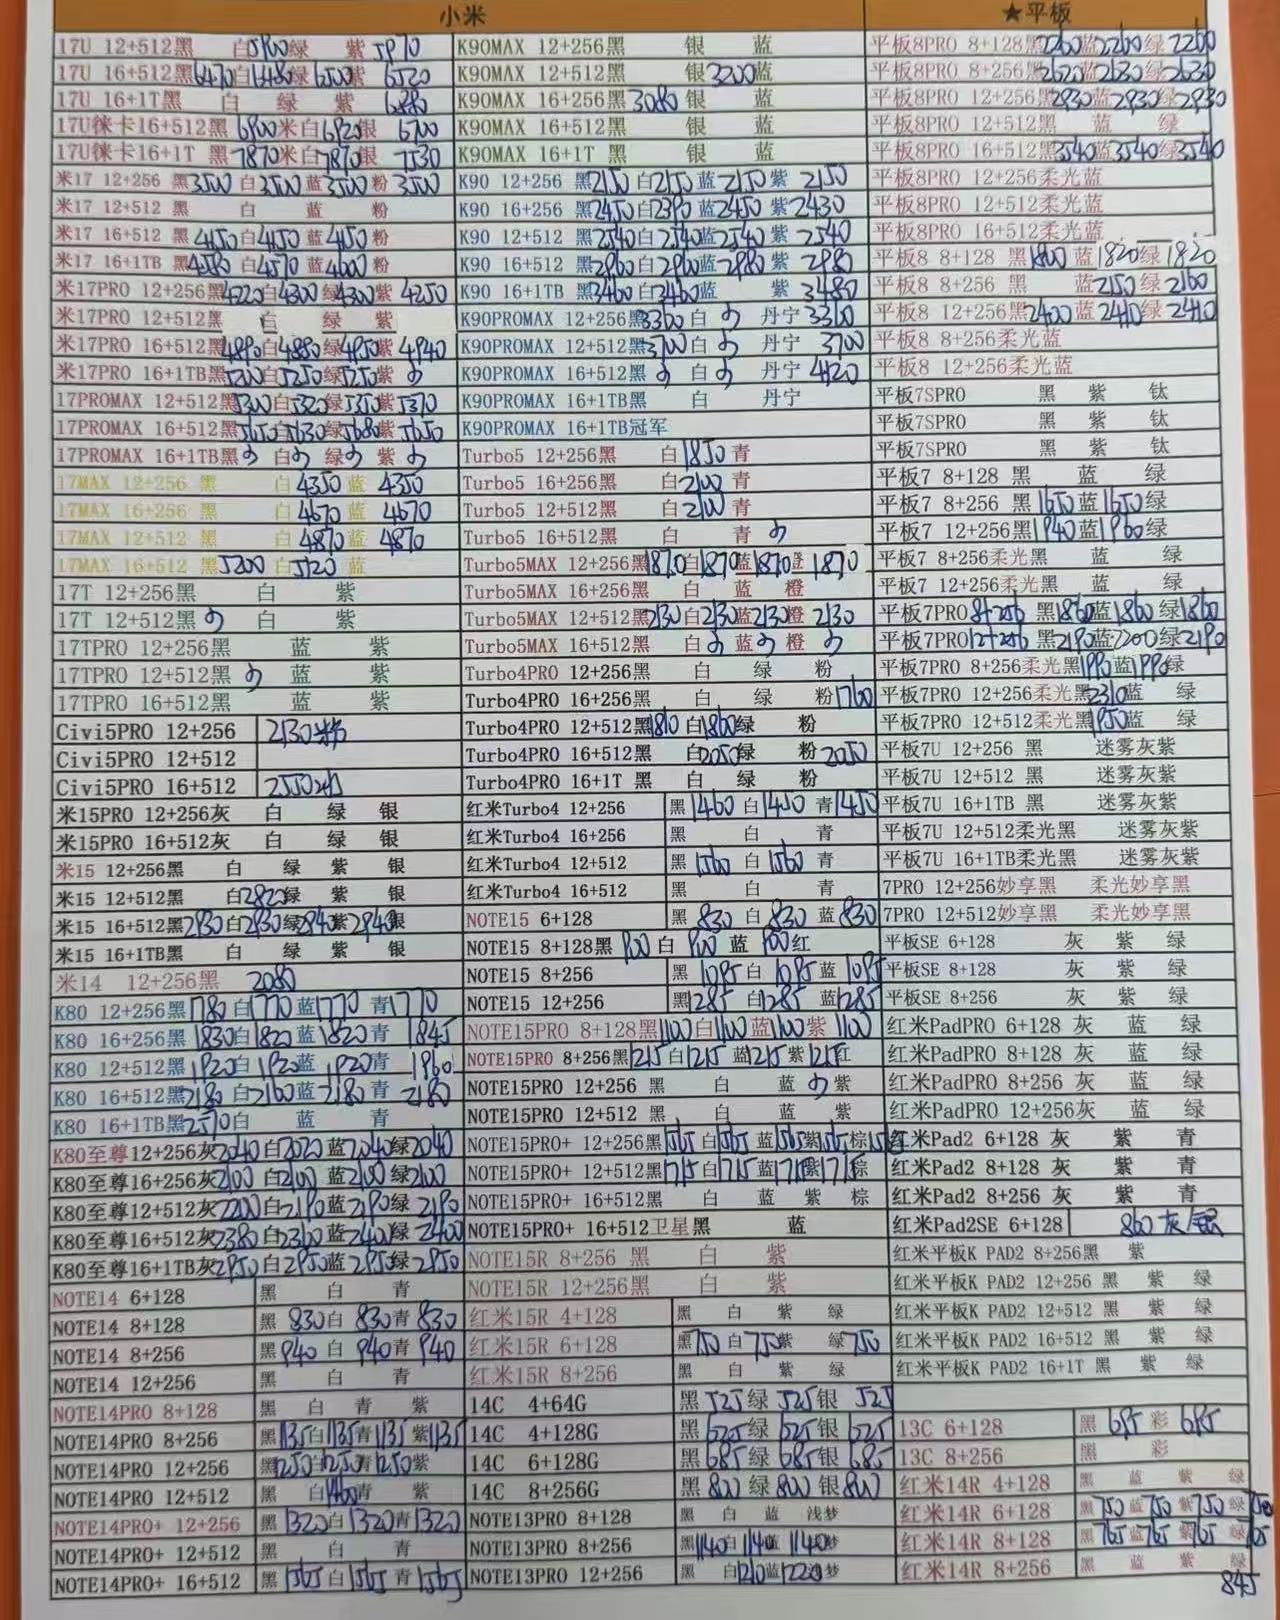 小米
17U 12+512黑 白5900绿 紫5970
17U 16+512黑6470白6480绿6500紫6520
17U 16+1T黑 白 绿 紫 6880
17U徕卡16+512黑6900米白6920银 6700
17U徕卡16+1T 黑7870米白7870银 7530
米17 12+256 黑3500白3500蓝3500粉3500
米17 12+512 黑 白 蓝 粉
米17 16+512 黑4150白4150蓝4150粉
米17 16+1TB黑4580白4570蓝4600粉
米17PRO 12+256黑4220白4300绿4300紫4250
米17PRO 12+512黑 白 绿 紫
米17PRO 16+512黑4890白4880绿4950紫4940
米17PRO 16+1TB黑5200白5250绿5250紫
17PROMAX 12+512黑5300白5320绿5350紫5370
17PROMAX 16+512黑5650白5630绿5680紫5650
17PROMAX 16+1TB黑 白 绿 紫
17MAX 12+256 黑 白4350蓝 4350
17MAX 16+256 黑 白4670蓝 4670
17MAX 12+512 黑 白4870蓝 4870
17MAX 16+512 黑5200白5120蓝
17T 12+256黑 白 紫
17T 12+512黑 白 紫
17TPRO 12+256黑 蓝 紫
17TPRO 12+512黑 蓝 紫
17TPRO 16+512黑 蓝 紫
Civi5PRO 12+256 2130
Civi5PRO 12+512
Civi5PRO 16+512 2550
米15PRO 12+256灰 白 绿 银
米15PRO 16+512灰 白 绿 银
米15 12+256黑 白 绿 紫 银
米15 12+512黑 白2820绿 紫 银
米15 16+512黑2930白2930绿2940紫2940银
米15 16+1TB黑 白 绿 紫 银
米14 12+256黑 2080
K80 12+256黑1780白1770蓝1770青1770
K80 16+256黑1830白1820蓝1820青1845
K80 12+512黑1920白1920蓝1920青1960
K80 16+512黑2180白2160蓝2180青2180
K80 16+1TB黑2570白 蓝 青
K80至尊12+256灰2040白2020蓝2040绿2040
K80至尊16+256灰2100白2100蓝2100绿2100
K80至尊12+512灰2200白2190蓝2190绿2190
K80至尊16+512灰2380白2360蓝2400绿2400
K80至尊16+1TB灰2950白2950蓝2950绿2950
NOTE14 6+128 黑 白 青
NOTE14 8+128 黑830白830青830
NOTE14 8+256 黑940白940青940
NOTE14 12+256 黑 白 青
NOTE14PRO 8+128 黑 白 青 紫
NOTE14PRO 8+256 黑1135白1135青1135紫1135
NOTE14PRO 12+256 黑1250白1250青1250紫
NOTE14PRO 12+512 黑 白1460青 紫
NOTE14PRO+ 12+256 黑1320白1320青1320
NOTE14PRO+ 12+512 黑 白 青
NOTE14PRO+ 16+512 黑1565白1565青1565
K90MAX 12+256黑 银 蓝
K90MAX 12+512黑 银3200蓝
K90MAX 16+256黑3080银 蓝
K90MAX 16+512黑 银 蓝
K90MAX 16+1T黑 银 蓝
K90 12+256 黑2150白2150蓝2150紫2150
K90 16+256 黑2450白2390蓝2450紫2430
K90 12+512 黑2540白2540蓝2540紫2540
K90 16+512 黑2960白2960蓝2980紫2980
K90 16+1TB黑3460白3460蓝 紫3480
K90PROMAX 12+256黑3360白 丹宁3360
K90PROMAX 12+512黑3700白 丹宁3700
K90PROMAX 16+512黑 白 丹宁4120
K90PROMAX 16+1TB黑 白 丹宁
K90PROMAX 16+1TB冠军
Turbo5 12+256黑 白1850青
Turbo5 16+256黑 白2100青
Turbo5 12+512黑 白2100青
Turbo5 16+512黑 白 青
Turbo5MAX 12+256黑1870白1870蓝1870橙1870
Turbo5MAX 16+256黑 白 蓝 橙
Turbo5MAX 12+512黑2130白2130蓝2130橙2130
Turbo5MAX 16+512黑 白 蓝 橙
Turbo4PRO 12+256黑 白 绿 粉
Turbo4PRO 16+256黑 白 绿 粉1760
Turbo4PRO 12+512黑1810白1860绿 粉
Turbo4PRO 16+512黑 白2050绿 粉2050
Turbo4PRO 16+1T 黑 白 绿 粉
红米Turbo4 12+256 黑1460白1450青1450
红米Turbo4 16+256 黑 白 青
红米Turbo4 12+512 黑1560白1560青
红米Turbo4 16+512 黑 白 青
NOTE15 6+128 黑830白830蓝830
NOTE15 8+128黑900白900蓝900红
NOTE15 8+256 黑1095白1095蓝1095
NOTE15 12+256 黑1285白1285蓝1285
NOTE15PRO 8+128黑1100白1100蓝1100紫1100
NOTE15PRO 8+256黑1215白1215蓝1215紫1215红
NOTE15PRO 12+256 黑 白 蓝 紫
NOTE15PRO 12+512 黑 白 蓝 紫
NOTE15PRO+ 12+256黑1565白1565蓝1565紫1565棕
NOTE15PRO+ 12+512黑1715白1715蓝1715紫1715棕
NOTE15PRO+ 16+512黑 白 蓝 紫 棕
NOTE15PRO+ 16+512卫星黑 蓝
NOTE15R 8+256 黑 白 紫
NOTE15R 12+256黑 白 紫
红米15R 4+128 黑 白 紫 绿
红米15R 6+128 黑750白750紫 绿750
红米15R 8+256 黑 白 紫 绿
14C 4+64G 黑525绿525银525
14C 4+128G 黑625绿625银625
14C 6+128G 黑685绿685银685
14C 8+256G 黑800绿800银800
NOTE13PRO 8+128 黑 白 蓝 浅梦
NOTE13PRO 8+256 黑1140白1140蓝1140梦
NOTE13PRO 12+256 黑 白1210蓝1220梦
★平板
平板8PRO 8+128黑2260蓝2260绿2260
平板8PRO 8+256黑2620蓝2630绿2630
平板8PRO 12+256黑2930蓝2930绿2930
平板8PRO 12+512黑 蓝 绿
平板8PRO 16+512黑3540蓝3540绿3540
平板8PRO 8+256柔光蓝
平板8PRO 12+512柔光蓝
平板8PRO 16+512柔光蓝
平板8 8+128 黑1800蓝1820绿1820
平板8 8+256 黑 蓝2150绿2160
平板8 12+256黑2400蓝2410绿2410
平板8 8+256柔光蓝
平板8 12+256柔光蓝
平板7SPRO 黑 紫 钛
平板7SPRO 黑 紫 钛
平板7SPRO 黑 紫 钛
平板7 8+128 黑 蓝 绿
平板7 8+256 黑1650蓝1650绿
平板7 12+256黑1940蓝1960绿
平板7 8+256柔光黑 蓝 绿
平板7 12+256柔光黑 蓝 绿
平板7PRO8+256 黑1860蓝1860绿1860
平板7PRO12+256 黑2190蓝2200绿2190
平板7PRO 8+256柔光黑1990蓝1990绿
平板7PRO 12+256柔光黑2310蓝 绿
平板7PRO 12+512柔光黑 蓝 绿
平板7U 12+256 黑 迷雾灰紫
平板7U 12+512 黑 迷雾灰紫
平板7U 16+1TB 黑 迷雾灰紫
平板7U 12+512柔光黑 迷雾灰紫
平板7U 16+1TB柔光黑 迷雾灰紫
7PRO 12+256妙享黑 柔光妙享黑
7PRO 12+512妙享黑 柔光妙享黑
平板SE 6+128 灰 紫 绿
平板SE 8+128 灰 紫 绿
平板SE 8+256 灰 紫 绿
红米PadPRO 6+128 灰 蓝 绿
红米PadPRO 8+128 灰 蓝 绿
红米PadPRO 8+256 灰 蓝 绿
红米PadPRO 12+256灰 蓝 绿
红米Pad2 6+128 灰 紫 青
红米Pad2 8+128 灰 紫 青
红米Pad2 8+256 灰 紫 青
红米Pad2SE 6+128 860灰/银
红米平板K PAD2 8+256黑 紫
红米平板K PAD2 12+256 黑 紫 绿
红米平板K PAD2 12+512 黑 紫 绿
红米平板K PAD2 16+512 黑 紫 绿
红米平板K PAD2 16+1T 黑 紫 绿
13C 6+128 黑685彩685
13C 8+256 黑 彩
红米14R 4+128 黑 蓝 紫 绿
红米14R 6+128 黑750蓝750紫750绿750
红米14R 8+128 黑765蓝765紫765绿765
红米14R 8+256 黑 蓝 紫 绿
845